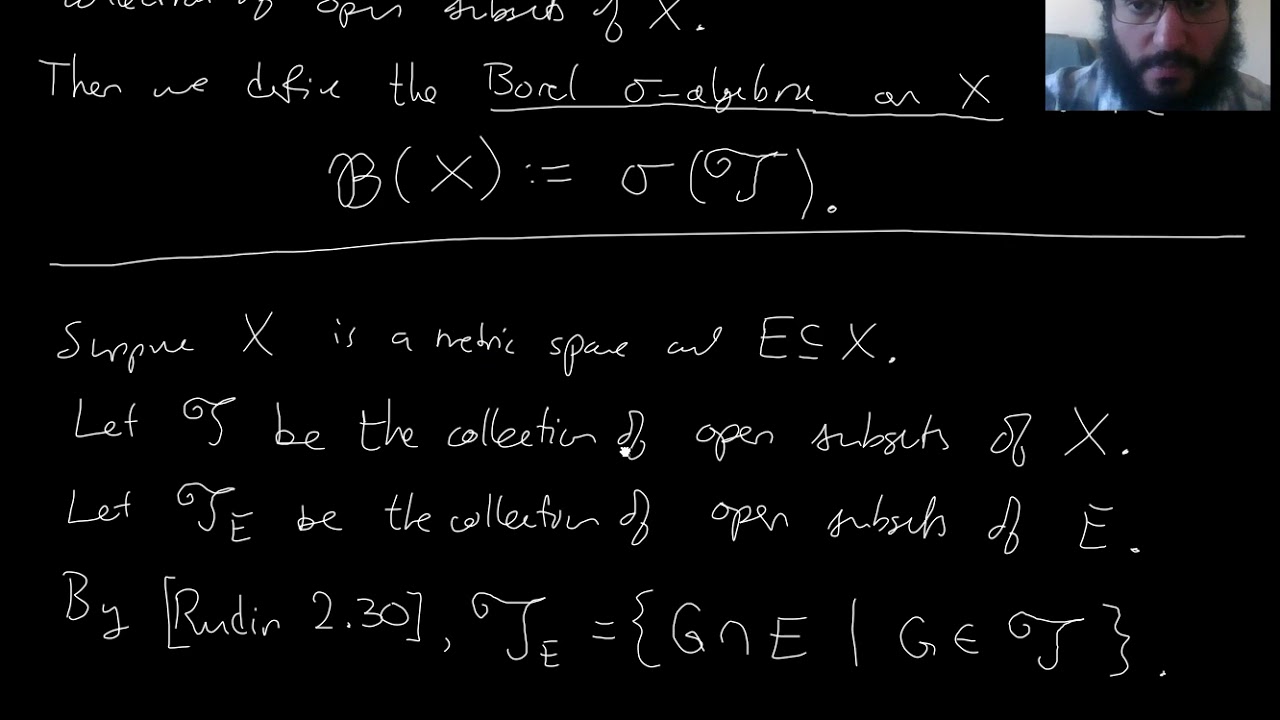 collection of open subsets of X.
Then we define the Borel σ-algebra on X
𝓑(X) := σ(𝒯).
Suppose X is a metric space and E ⊆ X.
Let 𝒯 be the collection of open subsets of X.
Let 𝒯_E be the collection of open subsets of E.
By [Rudin 2.30], 𝒯_E = {G ∩ E | G ∈ 𝒯}.